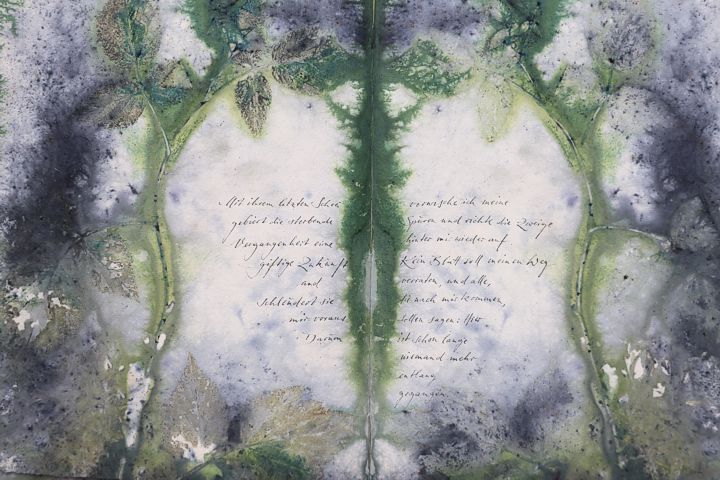 Mit ihrem letzten: Schon
gebiert die sterbende
Vergangenheit eine
giftige Zukunft
und
schleudert sie
mir voraus.
Darum
verwische ich meine
Spuren und richte die Zweige
hinter mir wieder auf.
Kein Blatt soll meinen Weg
verraten, und alle,
die nach mir kommen,
sollen sagen: Hier
ist schon lange
niemand mehr
entlang
gegangen.